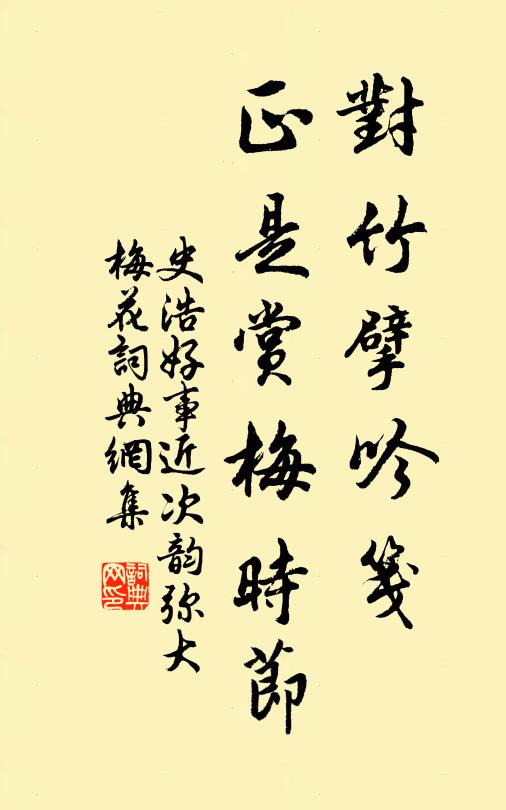 對竹擘吟箋
正是賞梅時節
史浩好事近次韵弥大
梅花詞典網集
詞典網印